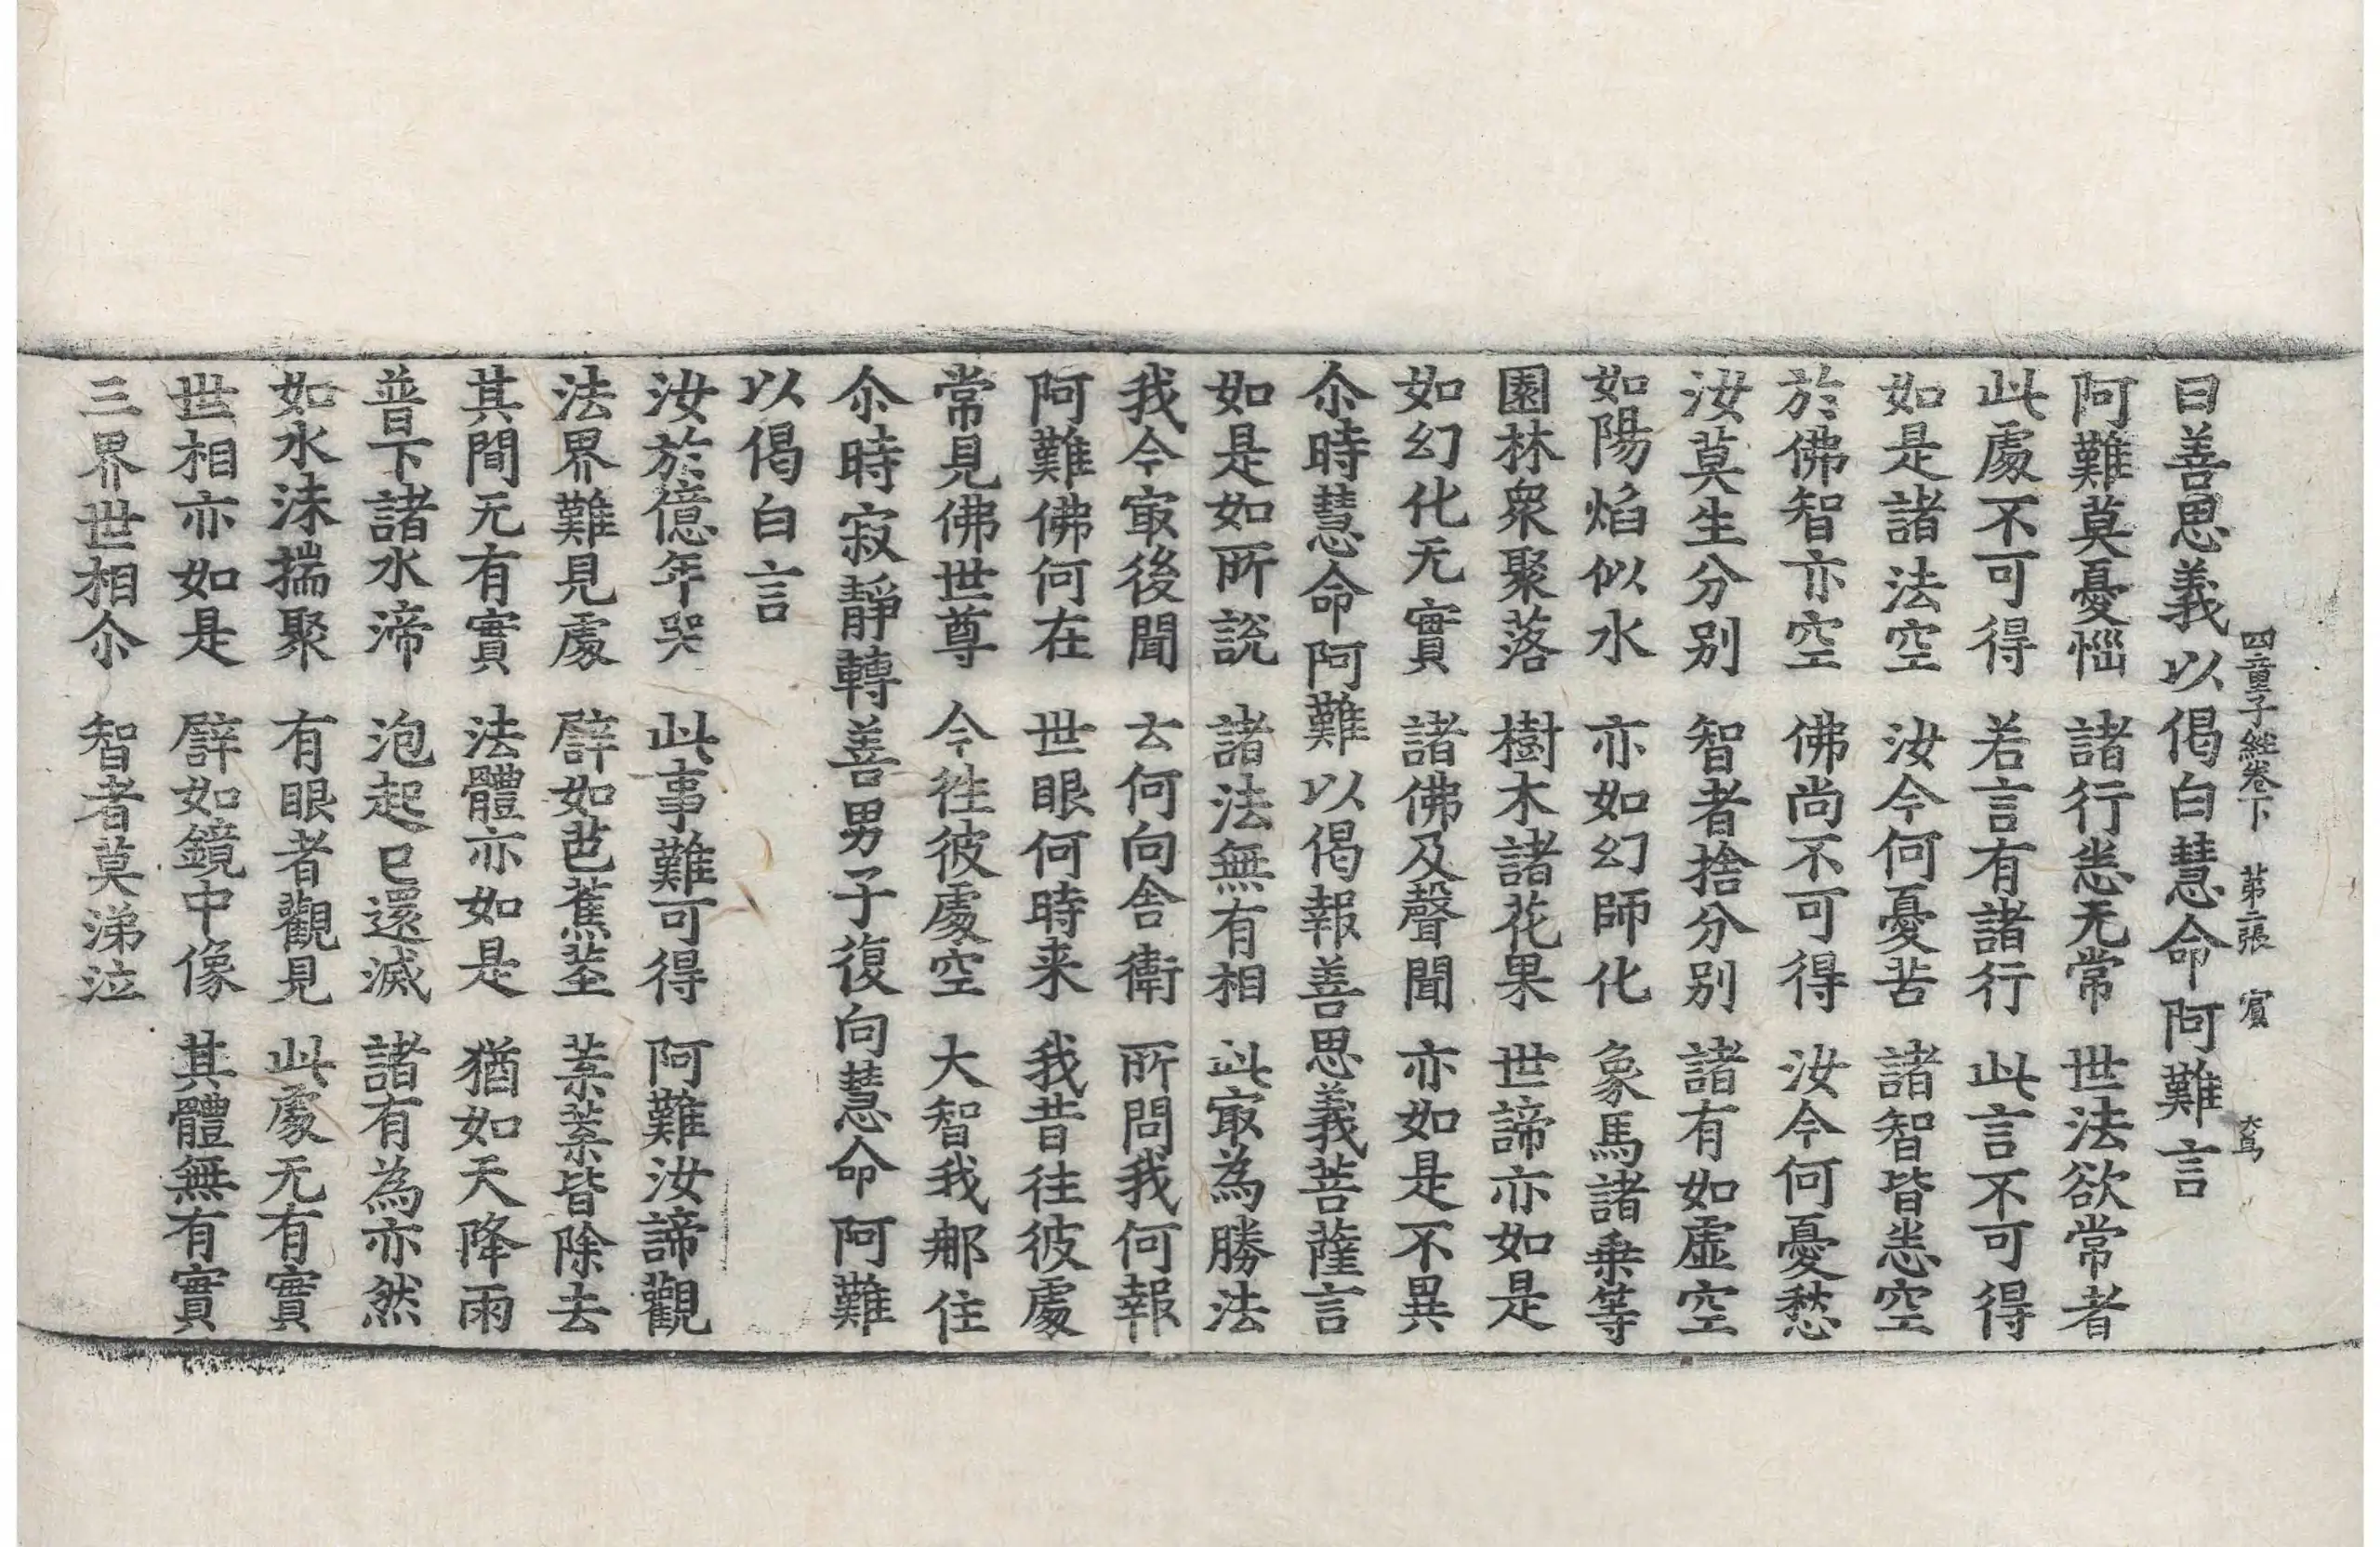 四童子經卷下 第二張 賓
曰善思義以偈白慧命阿難言
阿難莫憂惱 諸行悉无常 世法欲常者
此處不可得 若言有諸行 此言不可得
如是諸法空 汝今何憂苦 諸智皆悉空
於佛智亦空 佛尚不可得 汝今何憂愁
汝莫生分别 智者捨分别 諸有如虛空
如陽焰似水 亦如幻師化 象馬諸乗等
園林衆聚落 樹木諸花果 世諦亦如是
如幻化无實 諸佛及聲聞 亦如是不異
尒時慧命阿難以偈報善思義菩薩言
如是如所說 諸法無有相 此㝡為勝法
我今㝡後聞 去何向舎衛 所問我何報
阿難佛何在 世眼何時来 我昔往彼處
常見佛世尊 今徃彼處空 大智我郍住
尒時寂靜轉善男子復向慧命阿難
以偈白言
汝於億年哭 此事難可得 阿難汝諦觀
法界難見處 譬如芭蕉莖 葉葉皆除去
其間无有實 法體亦如是 猶如天降雨
普下諸水渧 泡起已還滅 諸有為亦然
如水沫揣聚 有眼者觀見 此處无有實
世相亦如是 譬如鏡中像 其體無有實
三界世相尒 智者莫涕泣